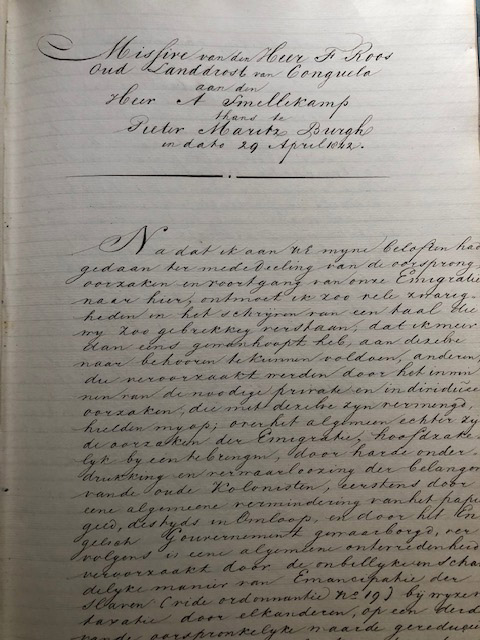 Missive van den Heer F Roos
Oud Landdrost van Conguela
aan den
Heer A Smellekamp
thans te
Pieter Maritz Burgh
in dato 29 April 1842.
Na dat ik aan UE myne beloften had
gedaan ter mededeeling van de oorsprong
oorzaken en voortgang van onze Emigratie
naar hier, ontmoet ik zoo vele zwarig-
heden in het schryven van een taal die
my zoo gebrekkig verstaan, dat ik meer
dan eens gewanhoopt heb, aan dezelve
naar behooren te kunnen voldoen, anderen,
die veroorzaakt werden door het
van de nodige private en individuëe
oorzaken, die met dezelve zyn vermengd,
hielden my op; over het algemeen echter zy
de oorzaken der Emigratie, hoofdzake-
lyk by een te brengen, door harde onder-
drukking en verwaarloozing der belangen
van de oude Kolonisten, eerstens door
eene algemeene vermindering van het papie
geld, destyds in Omloop, en door het En
gelsch Gouvernement gewaarborgd, ver
volgens is eene algemeene ontevredenheid
veroorzaakt door de onbillyke en scha
delyke manier van Emancipatie der
Slaven (vide ordonnantie No 19) bij wyze
taxatie door elkanderen, op een derde
van de oorspronkelyke waarde gereduce